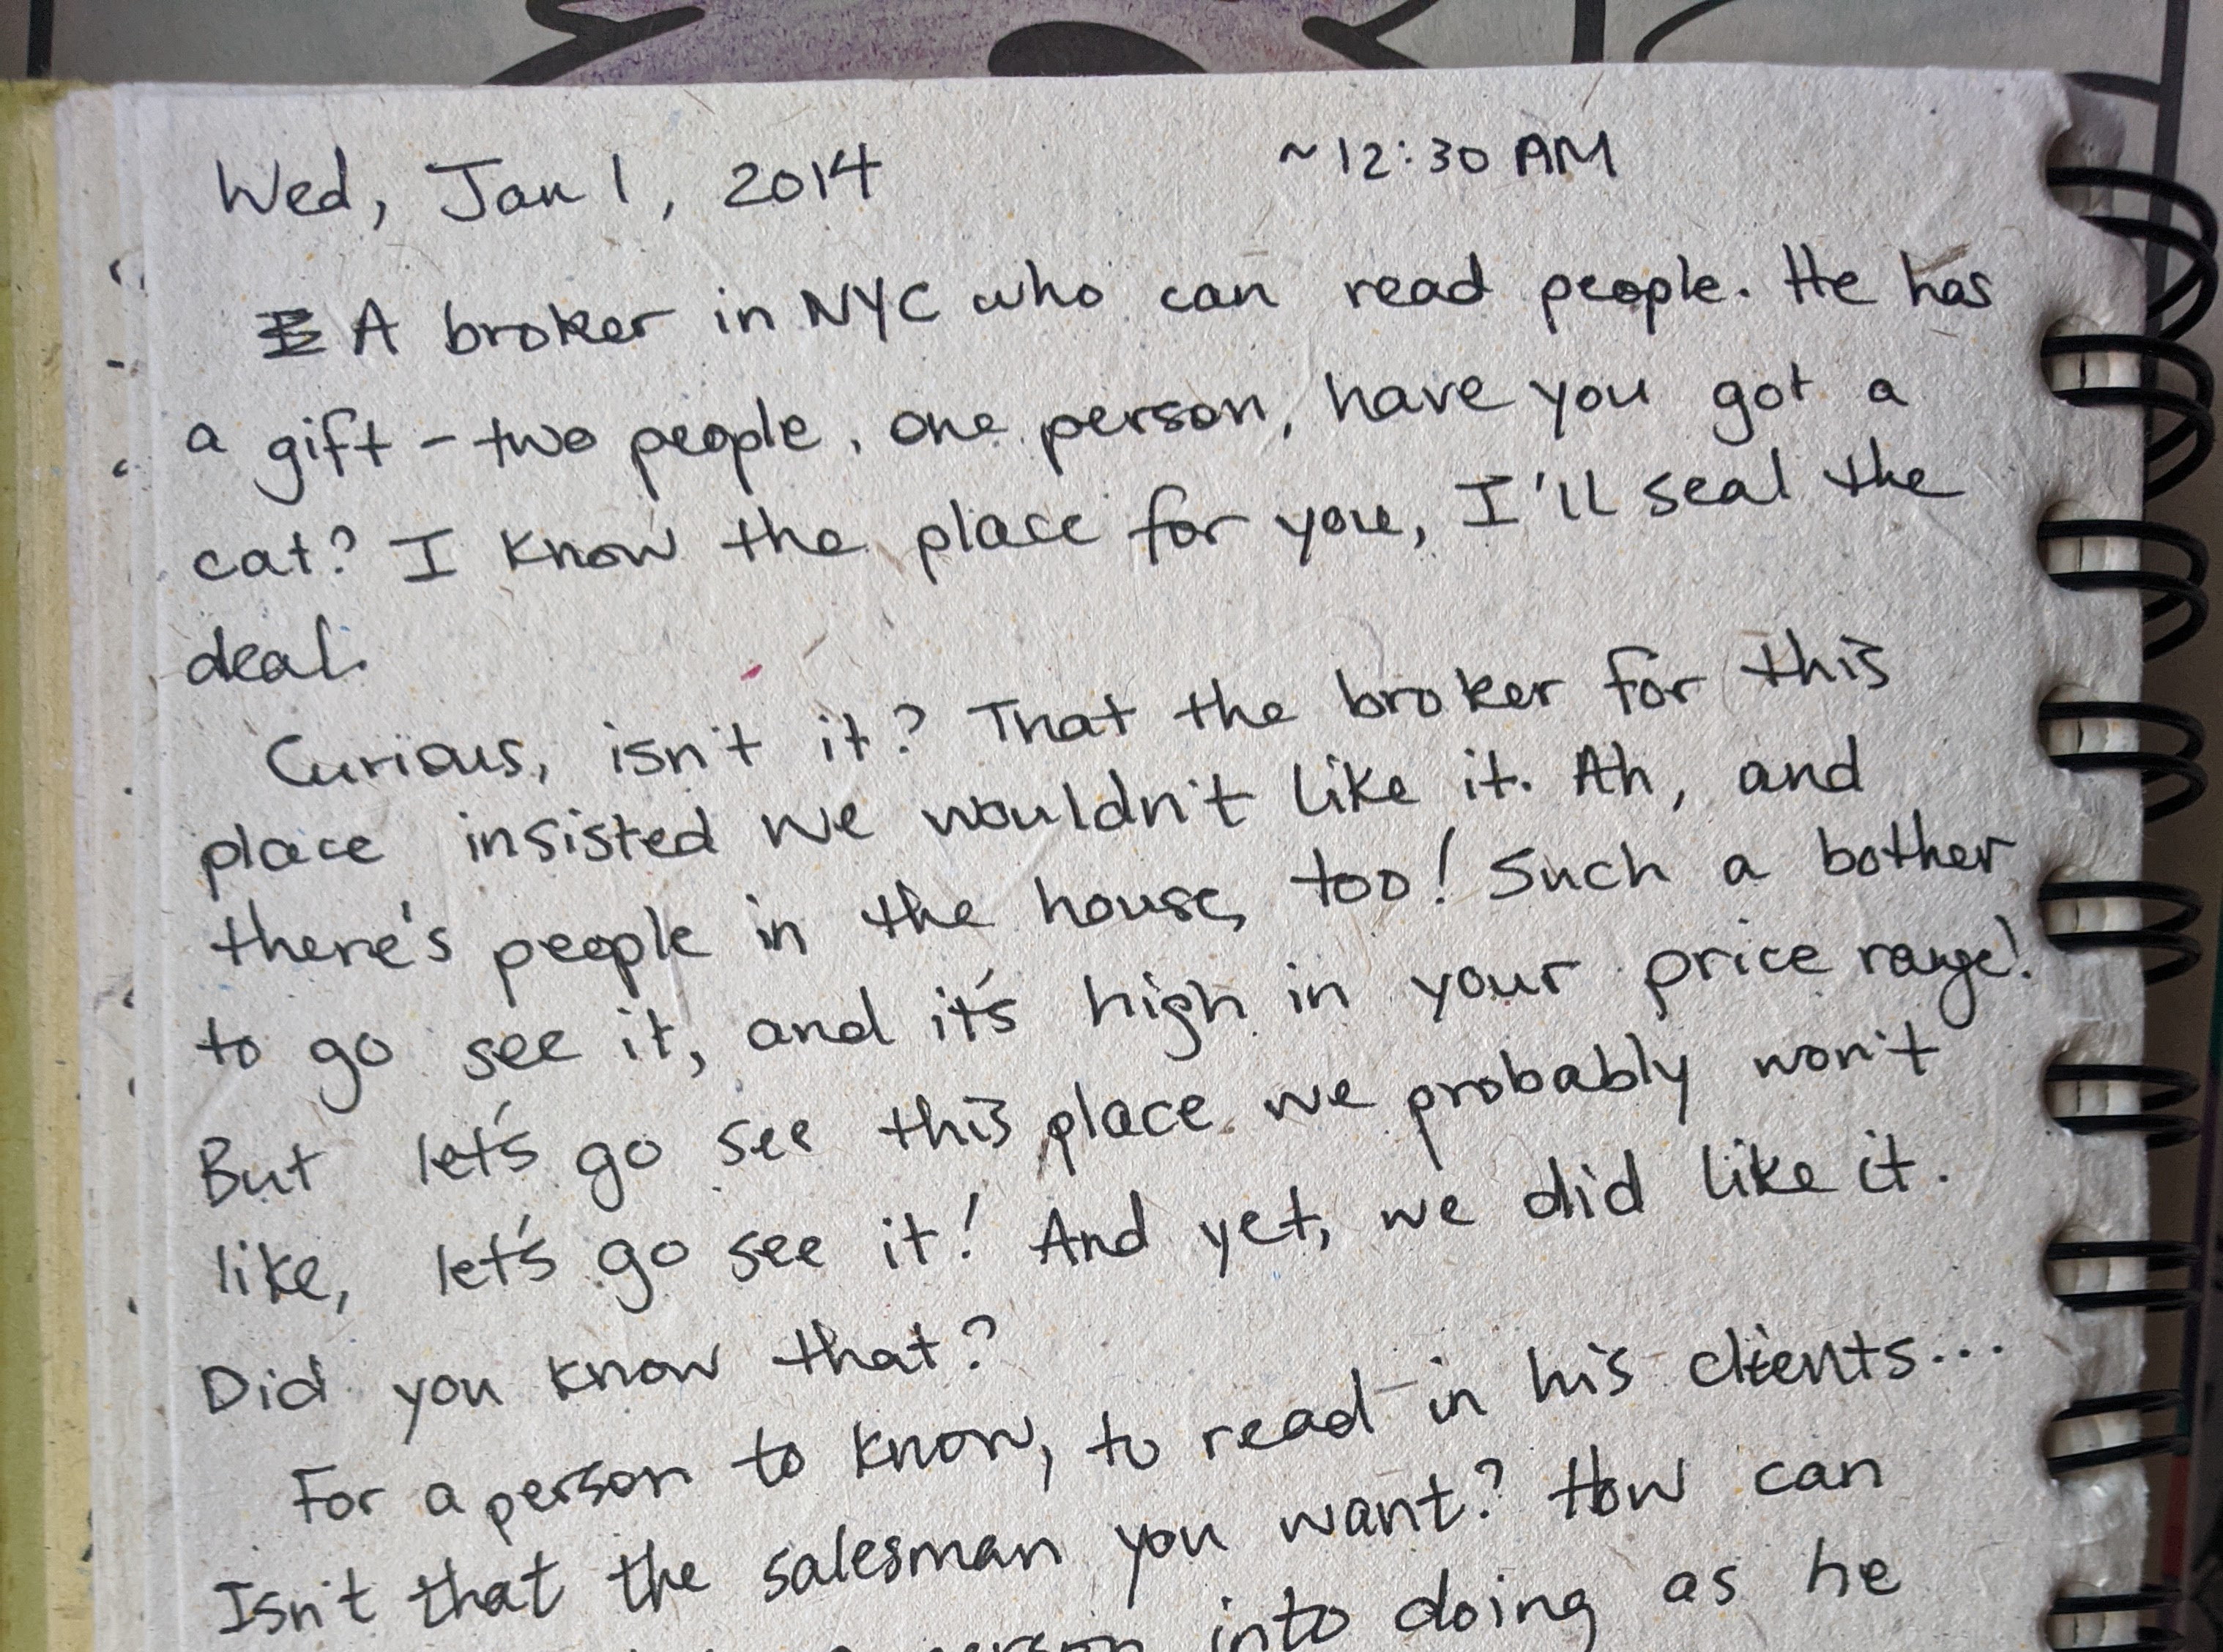 Wed, Jan 1, 2014 ~12:30 AM
A broker in NYC who can read people. He has
a gift - two people, one person, have you got a
cat? I know the place for you, I'll seal the
deal.
Curious, isn't it? That the broker for this
place insisted we wouldn't like it. Ah, and
there's people in the house, too! Such a bother
to go see it, and it's high in your price range!
But let's go see this place we probably won't
like, let's go see it! And yet, we did like it.
Did you know that?
For a person to know, to read in his clients...
Isn't that the salesman you want? How can
person into doing as he